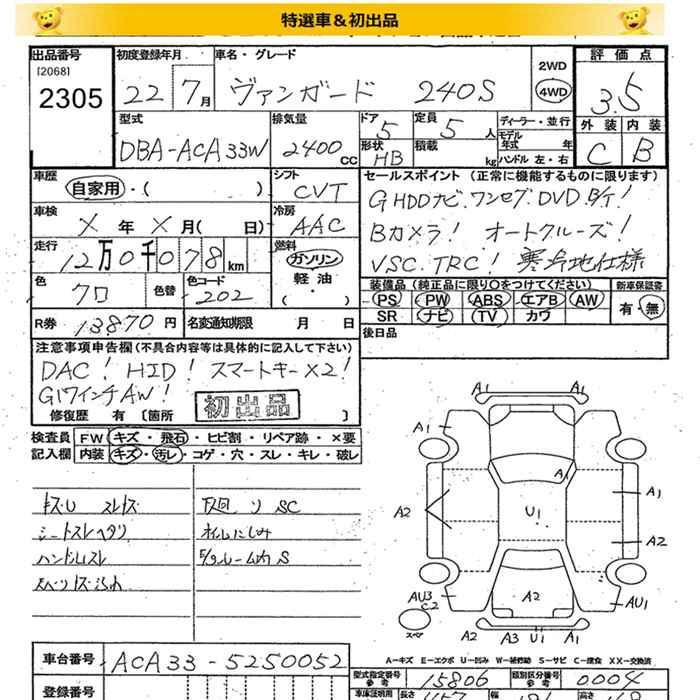 特選車＆初出品
出品番号 [2068] 2305
初度登録年月 22 7月
車名・グレード ヴァンガード 240S
2WD 4WD
評価点 3.5
型式 DBA-ACA33W
排気量 2400cc
ドア 5
形状 HB
定員 5人
積載 kg
ディーラー・並行
モデル年式 年
ハンドル 左・右
外装 C
内装 B
車歴 自家用・( )
シフト CVT
セールスポイント (正常に機能するものに限ります)
G HDDナビ、ワンセグ、DVD、B/T!
車検 X年X月( 日)
冷房 AAC
Bカメラ! オートクルーズ!
走行 12万0千078km
燃料 ガソリン 軽油・( )
VSC、TRC! 寒冷地仕様
色 クロ
色替
色コード 202
装備品 (純正品に限り○をつけてください)
PS PW ABS エアB AW
SR ナビ TV カワ
新車保証書 有・無
R券 13870円
名変通知期限 月 日
後日品
注意事項申告欄 (不具合内容等は具体的に記入して下さい)
DAC! HID! スマートキー×2!
G17インチAW!
修復歴 有 [箇所 ]
初出品
検査員 FW キズ・飛石・ヒビ割・リペア跡・×要
記入欄 内装 キズ・汚レ・コゲ・穴・スレ・キレ・破レ
シートスレヘタリ
ハンドルスレ
下廻リ SC
オイルにじみ
A1 A1
A1
A1
A1
A2
U1
A2
A2
AU3
C2
AU1
スペア
A2 A3 U1 A1
A-キズ E-エクボ U-凹み W-補修跡 S-サビ C-腐食 XX-交換済
車台番号 ACA33-5250052
型式指定番号 参考 15806
類別区分番号 参考 0004
登録番号
車庫証明用 長さ 457 幅 高さ